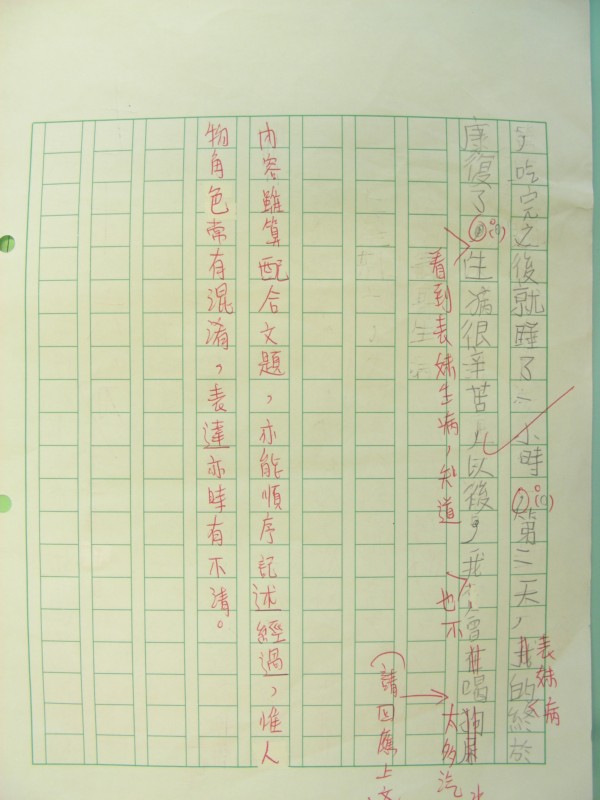 ,吃完之後就睡了一小時(!)第二天,我的終於
表妹病
康復了(!)生病很辛苦以後,我會喝
看到表妹生病,知道
也不
太多汽
(請回應上文
內容雖算配合文題,亦能順序記述經過,惟人
物角色常有混淆,表達亦時有不清。